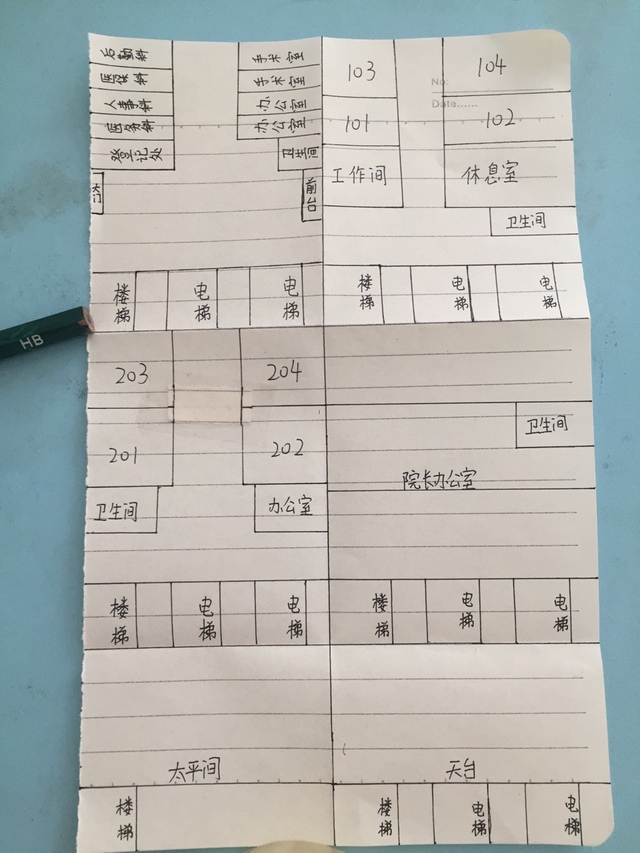 后勤科
医保科
人事科
医务科
登记处
大门
手术室
手术室
办公室
办公室
卫生间
前台
楼梯
电梯
电梯
103
104
No:
Date......
101
102
工作间
休息室
卫生间
楼梯
电梯
电梯
203
204
201
202
卫生间
办公室
楼梯
电梯
电梯
卫生间
院长办公室
楼梯
电梯
电梯
太平间
楼梯
天台
楼梯
电梯
电梯
HB